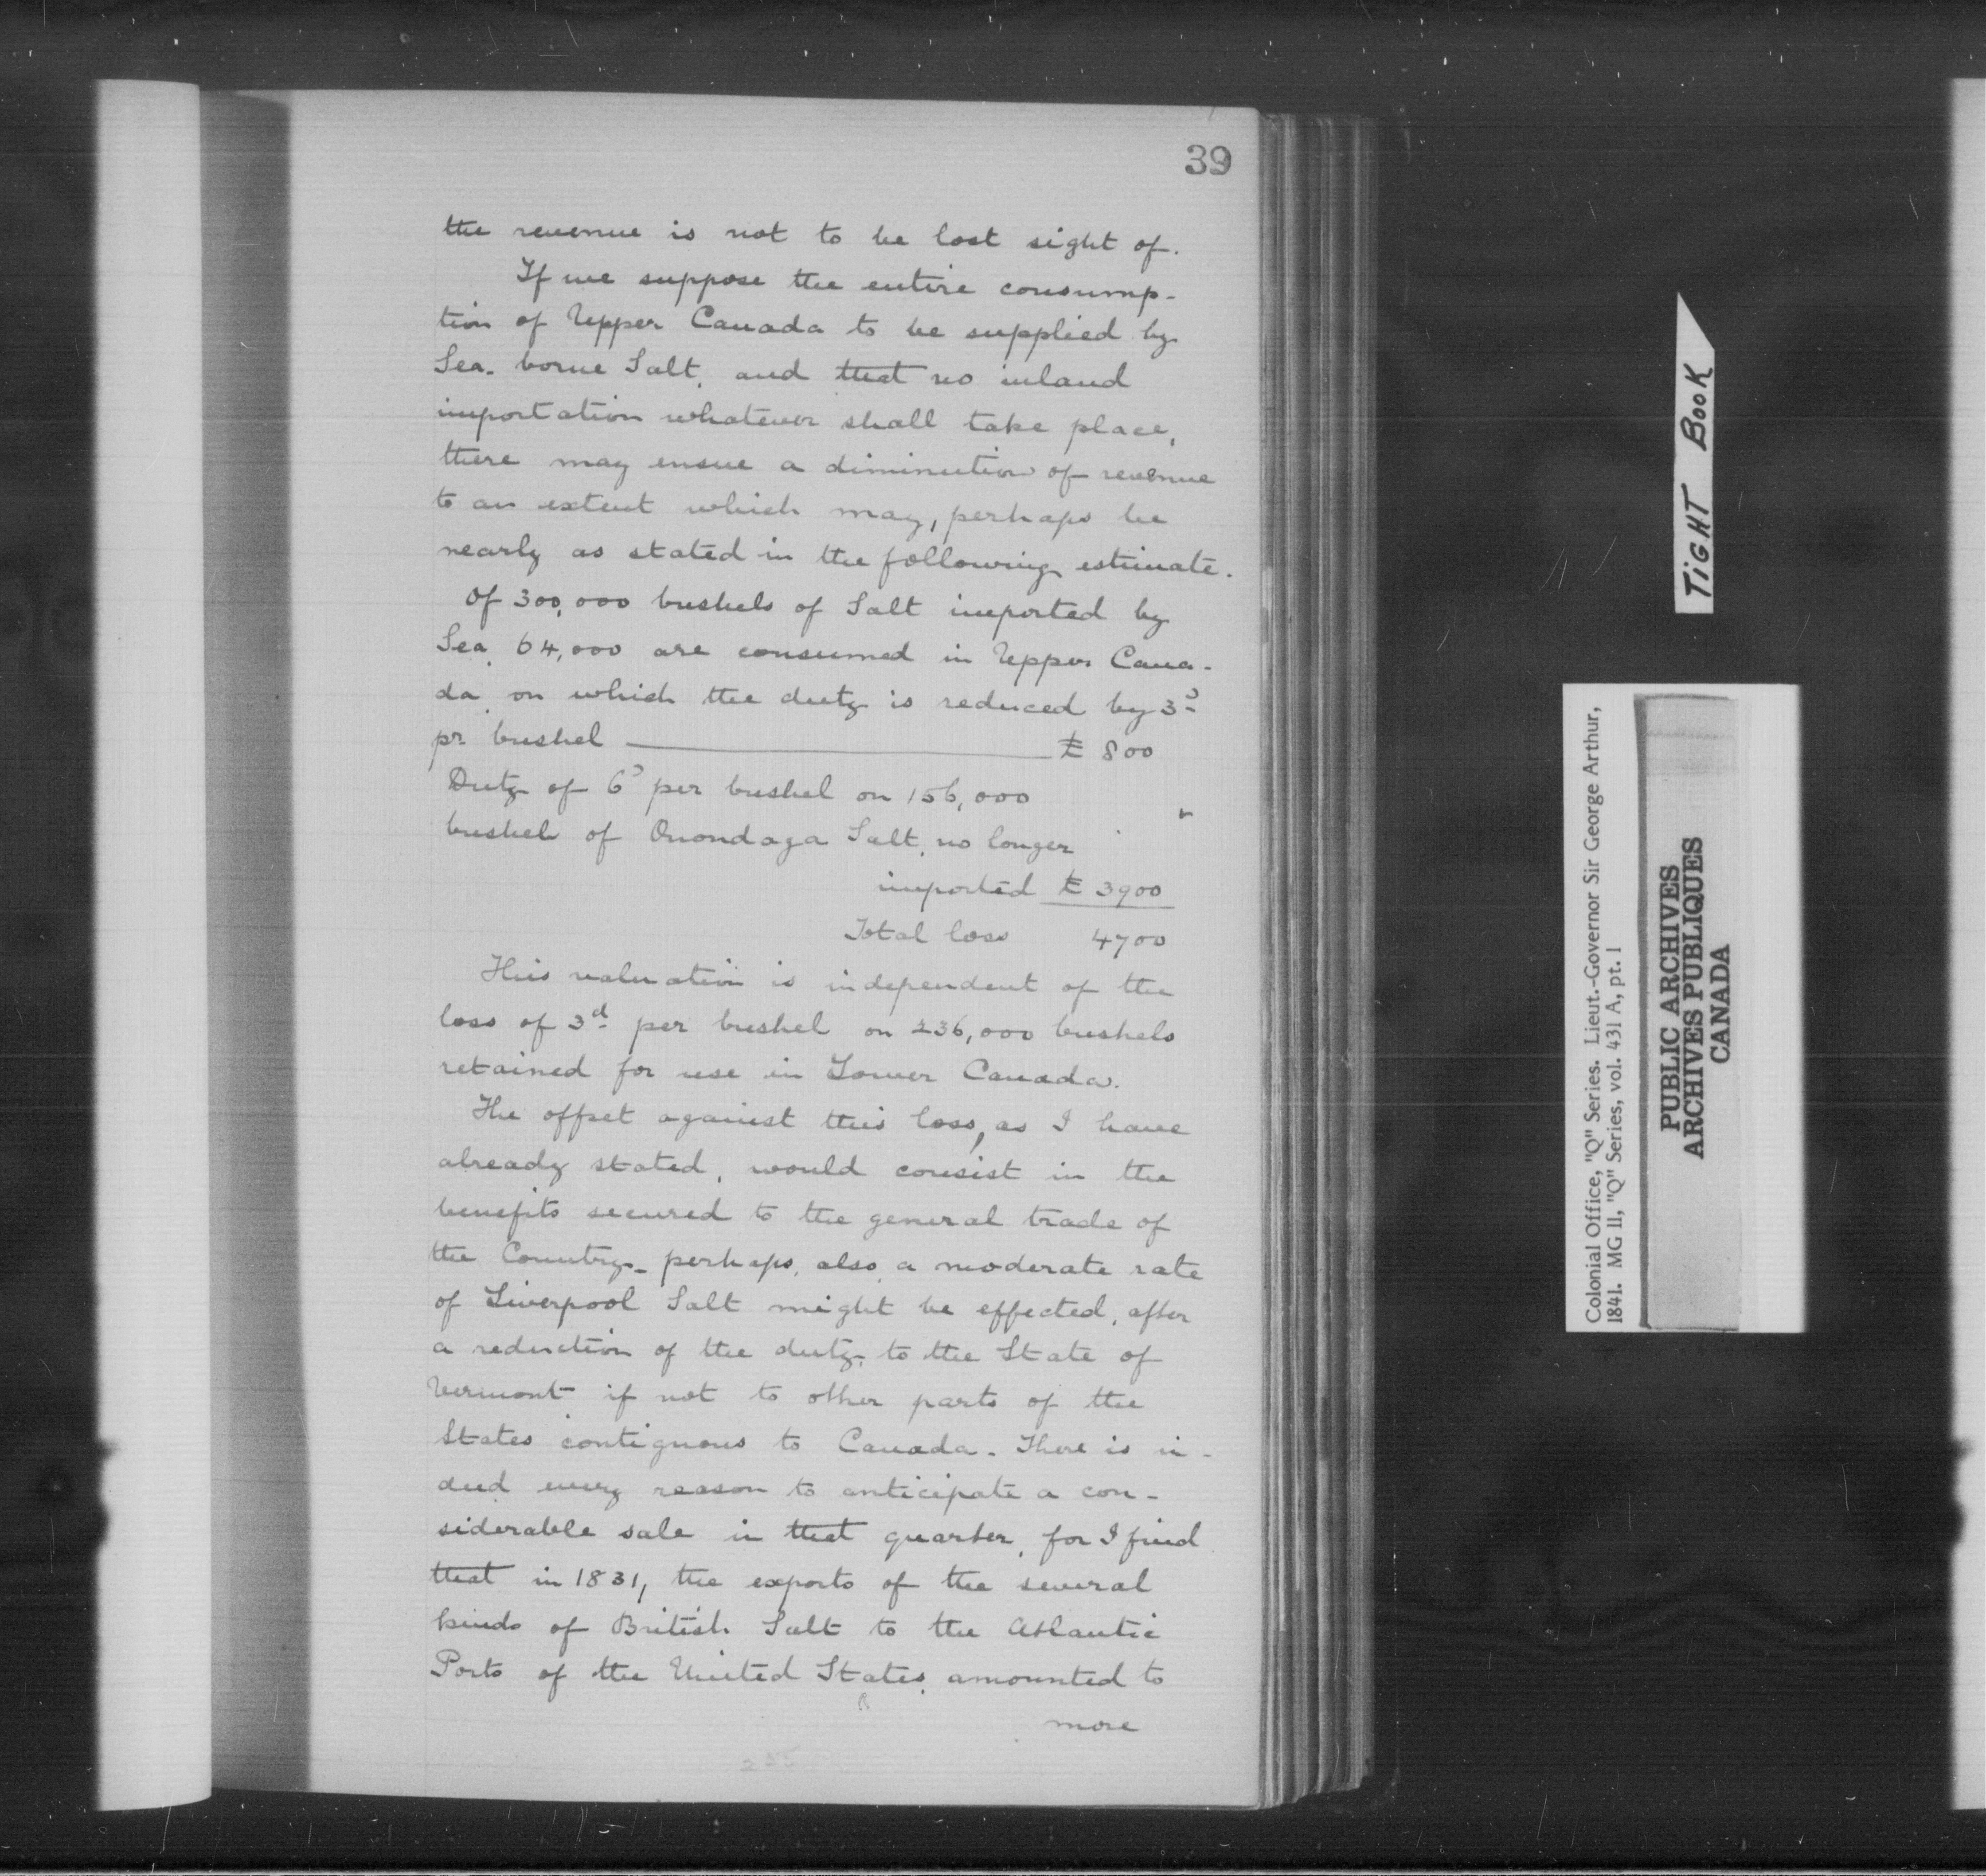 39
the revenue is not to be lost sight of.
If we suppose the entire consump-
tion of Upper Canada to be supplied by
Sea-borne Salt, and that no inland
importation whatever shall take place,
there may ensue a diminution of revenue
to an extent which may, perhaps be
nearly as stated in the following estimate.
Of 300,000 bushels of Salt imported by
Sea, 64,000 are consumed in Upper Cana-
da, on which the duty is reduced by 3d
pr bushel ——— £ 800
Duty of 6d per bushel on 156,000
bushels of Onondaga Salt, no longer
imported £ 3900
Total loss 4700
This valuation is independent of the
loss of 3d per bushel on 236,000 bushels
retained for use in Lower Canada.
The offset against this loss, as I have
already stated, would consist in the
benefits secured to the general trade of
the Country - perhaps, also, a moderate rate
of Liverpool Salt might be effected, after
a reduction of the duty, to the State of
Vermont if not to other parts of the
States contiguous to Canada. There is in-
deed every reason to anticipate a con-
siderable sale in that quarter, for I find
that in 1831, the exports of the several
kinds of British Salt to the Atlantic
Ports of the United States, amounted to
more
255
TIGHT BOOK
Colonial Office, "Q" Series. Lieut.-Governor Sir George Arthur,
1841. MG 11, "Q" Series, vol. 431 A, pt. 1
PUBLIC ARCHIVES
ARCHIVES PUBLIQUES
CANADA